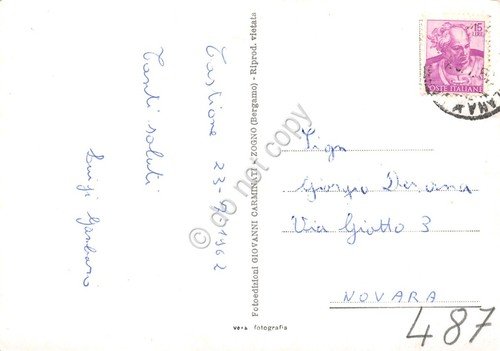 Castione 23-7-1962
Tanti saluti
Luigi
Fotoedizioni GIOVANNI CARMINATI - ZOGNO (Bergamo) - Riprod. vietata
vera fotografia
15
LIRE
POSTE ITALIANE
LANA
Sign
Giorgio
Via Giotto 3
NOVARA
487
do not copy